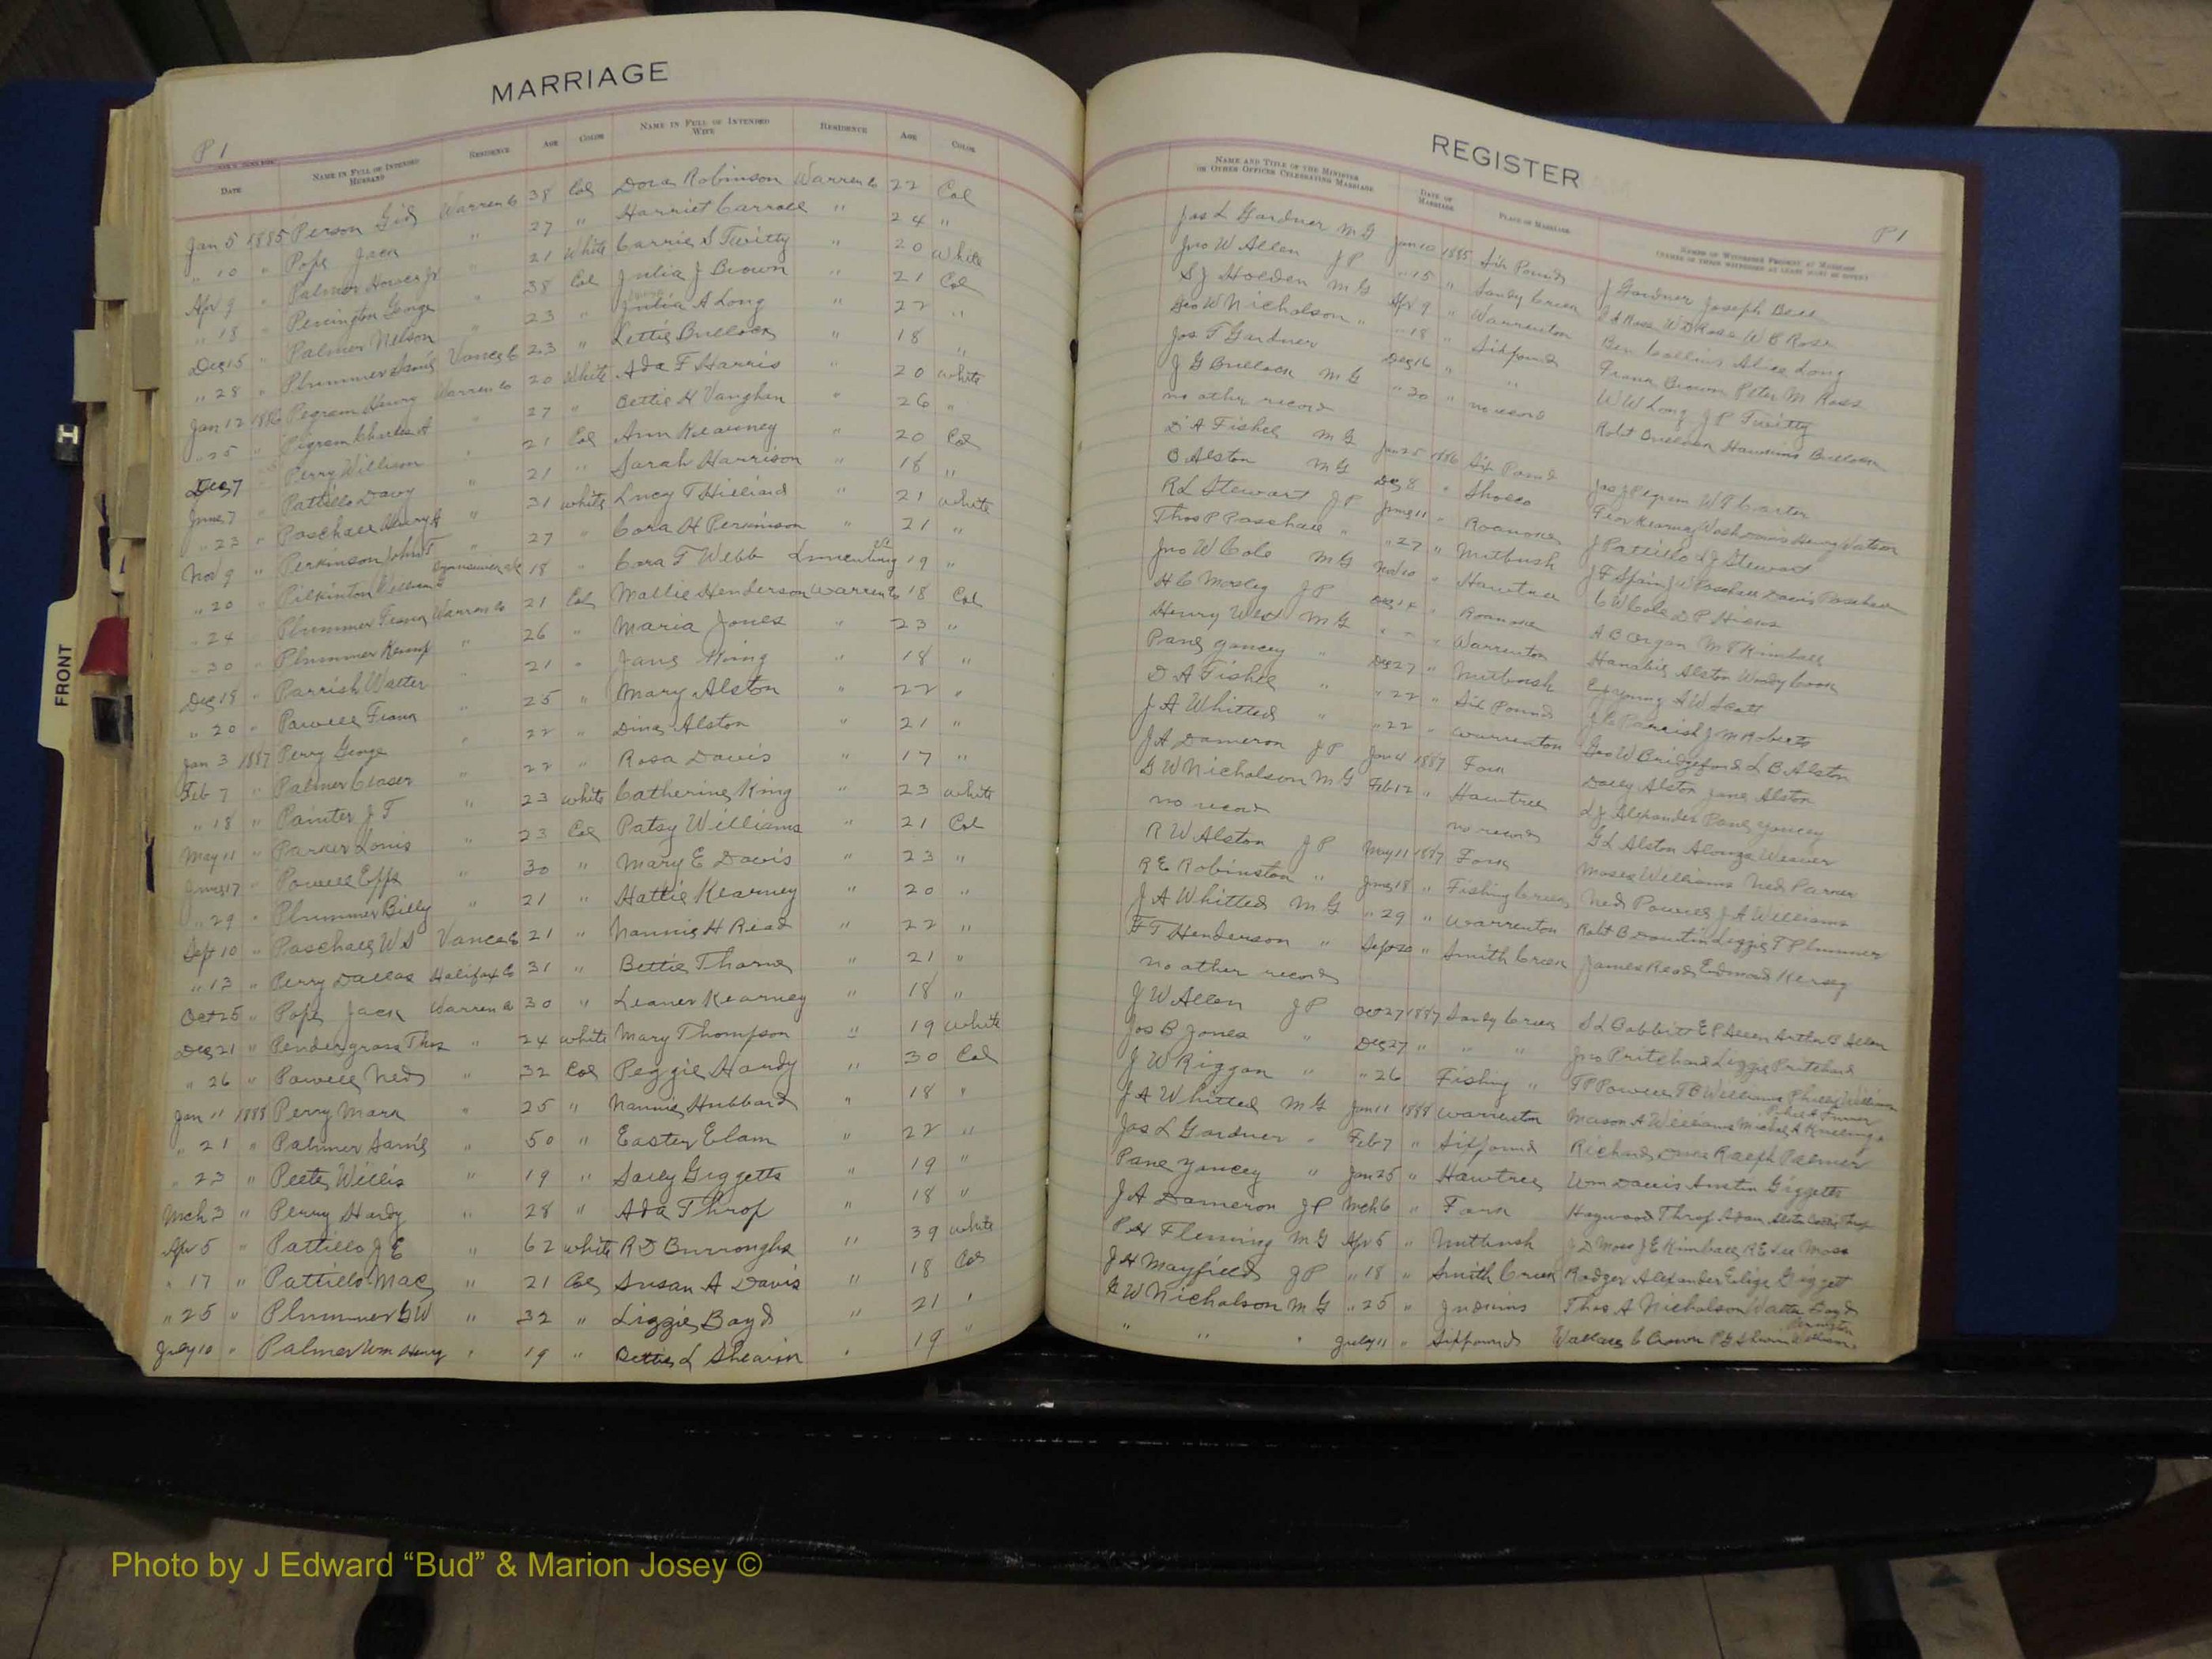 MARRIAGE
P 1
DATE NAME IN FULL OF INTENDED HUSBAND RESIDENCE AGE COLOR NAME IN FULL OF INTENDED WIFE RESIDENCE AGE COLOR
Jan 5 1885 Person Gid Warren Co 38 Col Dora Robinson Warren Co 22 Col
" 10 " Pope Jack " 27 " Harriet Carroll " 24 "
Apr 9 " Palmer Horace Jr " 21 White Carrie S Twitty " 20 White
" 18 " Penington George " 38 Col Julia J Brown " 21 Col
Dec 15 " Palmer Nelson " 23 " Julia A Long " 22 "
" 28 " Plummer Vance Co 23 " Lettie Bullock " 18 "
Jan 12 1886 Pegram Henry Warren Co 20 White Ada F Harris " 20 white
" 25 " Pegram Charles A " 27 " Bettie H Vaughan " 26 "
Dec 7 " Perry William " 21 Col Ann Kearney " 20 Col
June 7 " Pattillo Davy " 21 " Sarah Harrison " 18 "
" 23 " Paschall Henry A " 31 white Lucy T Hilliard " 21 white
Nov 9 " Perkinson John T " 27 " Cora H Perkinson " 21 "
" 20 " Pilkinton 18 " Cora T Webb 19 "
" 24 " Plummer Warren Co 21 Col Mallie Henderson Warren Co 18 Col
" 30 " Plummer Kemp " 26 " Maria Jones " 23 "
Dec 18 " Parrish Walter " 21 " Jane King " 18 "
" 20 " Powell Frank " 25 " Mary Alston " 22 "
Jan 3 1887 Perry George " 22 " Dina Alston " 21 "
Feb 7 " Palmer Ceaser " 22 " Rosa Davis " 17 "
" 18 " Painter J T " 23 white Catherine King " 23 white
May 11 " Parker Louis " 23 Col Patsy Williams " 21 Col
June 17 " Powell Epps " 30 " Mary E Davis " 23 "
" 29 " Plummer Billy " 21 " Hattie Kearney " 20 "
Sept 10 " Paschall W S Vance Co 21 " Nannie H Read " 22 "
" 13 " Perry Dallas Halifax Co 31 " Bettie Thorne " 21 "
Oct 25 " Pope Jack Warren Co 30 " Leaner Kearney " 18 "
Dec 21 " Pendergrass Thos " 24 white Mary Thompson " 19 white
" 26 " Powell Ned " 32 Col Peggie Hardy " 30 Col
Jan 11 1888 Perry Mark " 25 " Nannie Hubbard " 18 "
" 21 " Palmer " 50 " Easter Elam " 22 "
" 23 " Peete Willis " 19 " Sally Giggetts " 19 "
Mch 3 " Perry Hardy " 28 " Ada Throp " 18 "
Apr 5 " Pattillo J E " 62 white R D Burroughs " 39 white
" 17 " Pattillo Mac " 21 Col Susan A Davis " 18 Col
" 25 " Plummer G W " 32 " Lizzie Boyd " 21 "
July 10 " Palmer Wm Henry " 19 " Bettie L Shearin " 19 "
REGISTER
P 1
NAME AND TITLE OF THE MINISTER OR OTHER OFFICER CELEBRATING MARRIAGE DATE OF MARRIAGE PLACE OF MARRIAGE NAMES OF WITNESSES PRESENT AT MARRIAGE
Jas L Gardner M G Jan 10 1885 Six Pound J Gardner Joseph Bell
Jno W Allen J P " 15 " Sandy Creek W D Rose W B Rose
S J Holden M G Apr 9 " Warrenton Ben Collins Alice Long
Geo W Nicholson " " 18 " Sixpound Frank Brown Peter M Ross
Jos T Gardner Dec 16 " " W W Long J P Twitty
J G Bullock M G " 30 " no record Robt Bullock Hawkins Bullock
no other record
D A Fishel M G Jan 25 1886 Six Pound Jas J Pegram W T Carter
B Alston M G Dec 8 " Shocco Henry Watson
R L Stewart J P June 11 " Roanoke J Pattillo L J Stewart
Thos P Paschall " " 27 " Nutbush J F Spain Davis Paschall
Jno W Cole M G Nov 10 " Hawtree C W Cole D P Hicks
H C Mosley J P Dec 14 " Roanoke A B Organ M P Kimball
Henry West M G " " " Warrenton Alston Cook
Pane Yancey " Dec 27 " Nutbush E J Young S W Scott
D A Fishel " " 22 " Six Pound Parrish J M Roberts
J A Whitted " " 22 " Warrenton Geo W Bridgeford L B Alston
J A Dameron J P Jan 4 1887 Fork Dolly Alston Jane Alston
G W Nicholson M G Feb 12 " Hawtree L J Alexander Pane Yancey
no record no record G L Alston Alonza Weaver
R W Alston J P May 11 1887 Fork Moses Williams Ned Parker
R E Robinston " June 18 " Fishing Creek Ned Powell J A Williams
J A Whitted M G " 29 " Warrenton Robt B Lizzie T Plummer
F T Henderson " Sept 20 " Smith Creek James Read Edmond Kersey
no other record
J W Allen J P Oct 27 1887 Sandy Creek S L Babbitt E P Allen Arthur B Allen
Jos B Jones " Dec 27 " " " Jno Pritchard Lizzie Pritchard
J W Riggan " " 26 Fishing " T P Powell T B Williams
J A Whitted M G Jan 11 1888 Warrenton Mason A Williams
Jas L Gardner " Feb 7 " Sixpound Richard Ralph Palmer
Pane Yancey " Jan 25 " Hawtree Wm Davis Austin Giggetts
J A Dameron J P Mch 6 " Fork Haywood Throp Adam
P H Fleming M G Apr 5 " Nutbush J D Moss J E Kimball R E Lee Moss
J H Mayfield J P " 18 " Smith Creek Rodger Alexander Giggett
G W Nicholson M G " 25 " Judkins Thos A Nicholson Walter Boyd
" " " July 11 " Sixpound Wallace C Crown
FRONT
H
Photo by J Edward “Bud” & Marion Josey ©